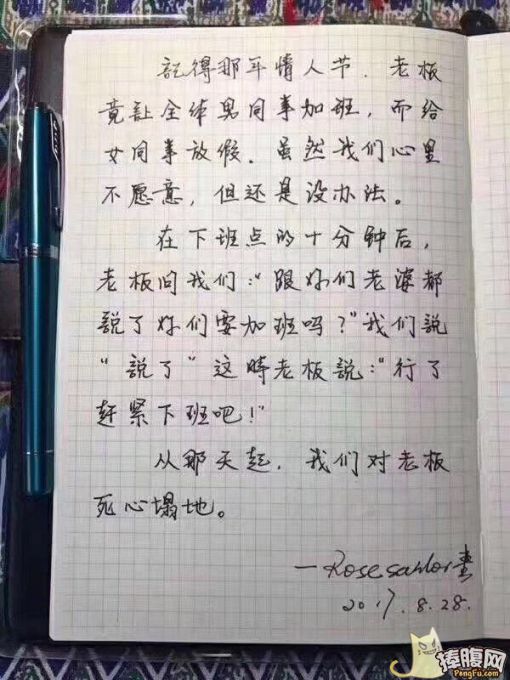 記得那年情人节．老板
竟让全体男同事加班，而给
女同事放假．虽然我们心里
不愿意，但还是没办法。
在下班点的十分钟后，
老板问我们：“跟你们老婆都
説了你们要加班吗？”我们説
“説了”这時老板説：“行了
赶紧下班吧！”
从那天起．我们对老板
死心塌地。
2017.8.28.
捧腹网
PengFu.com